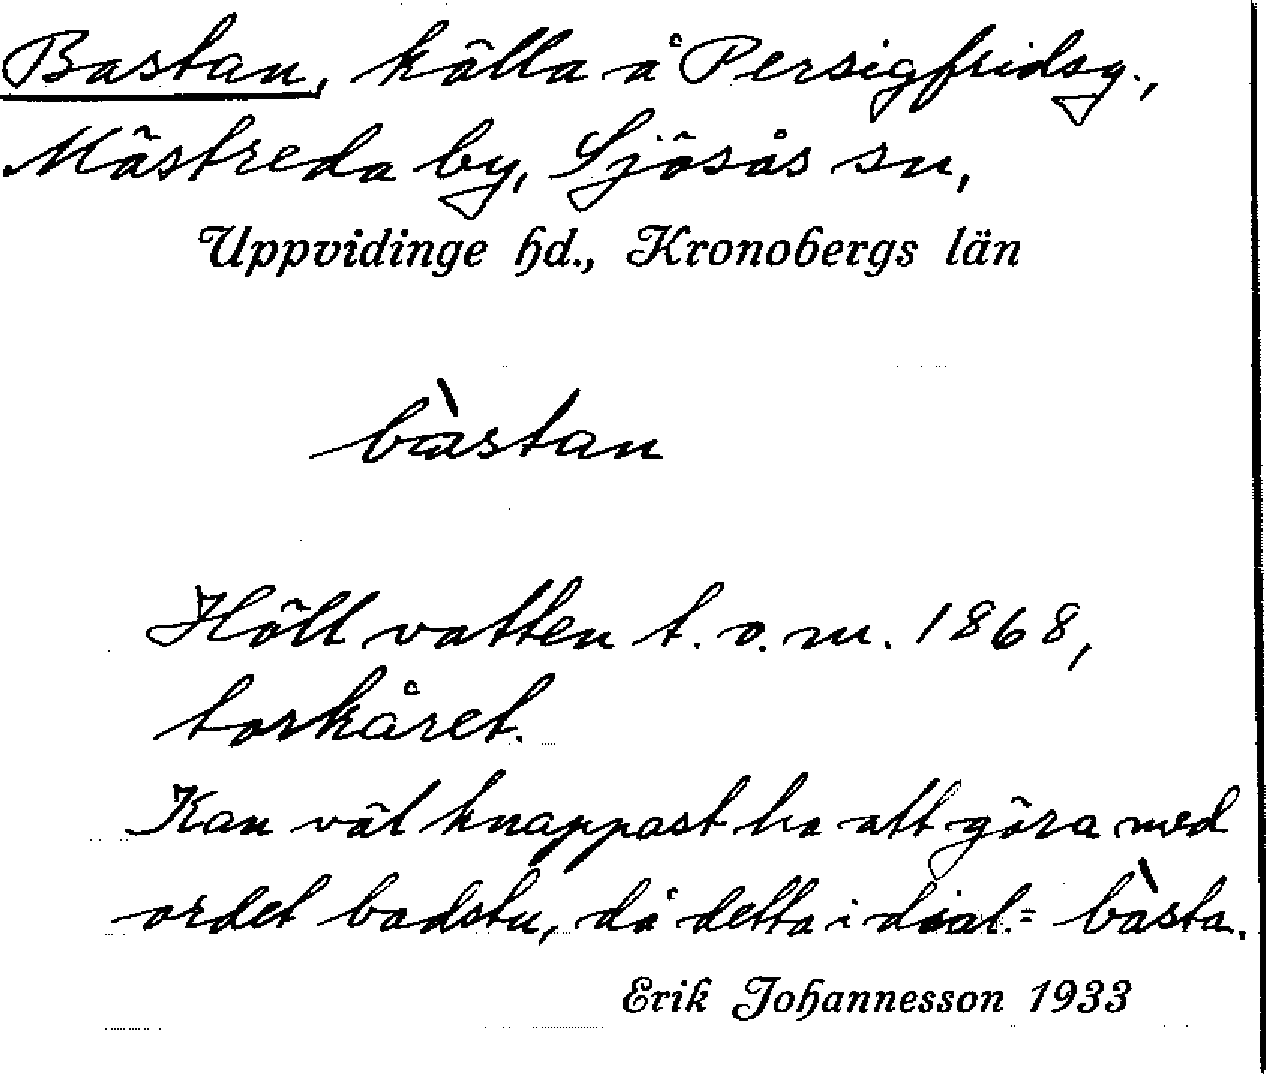 Bastan, källa å Persigfridsg.,
Mästreda by, Sjösås sn,
Uppvidinge hd., Kronobergs län
bàstan
Höll vatten t. o. m. 1868,
torkåret.
Kan väl knappast ha att göra med
ordet badstu, då detta i dial. = bàsta.
Erik Johannesson 1933